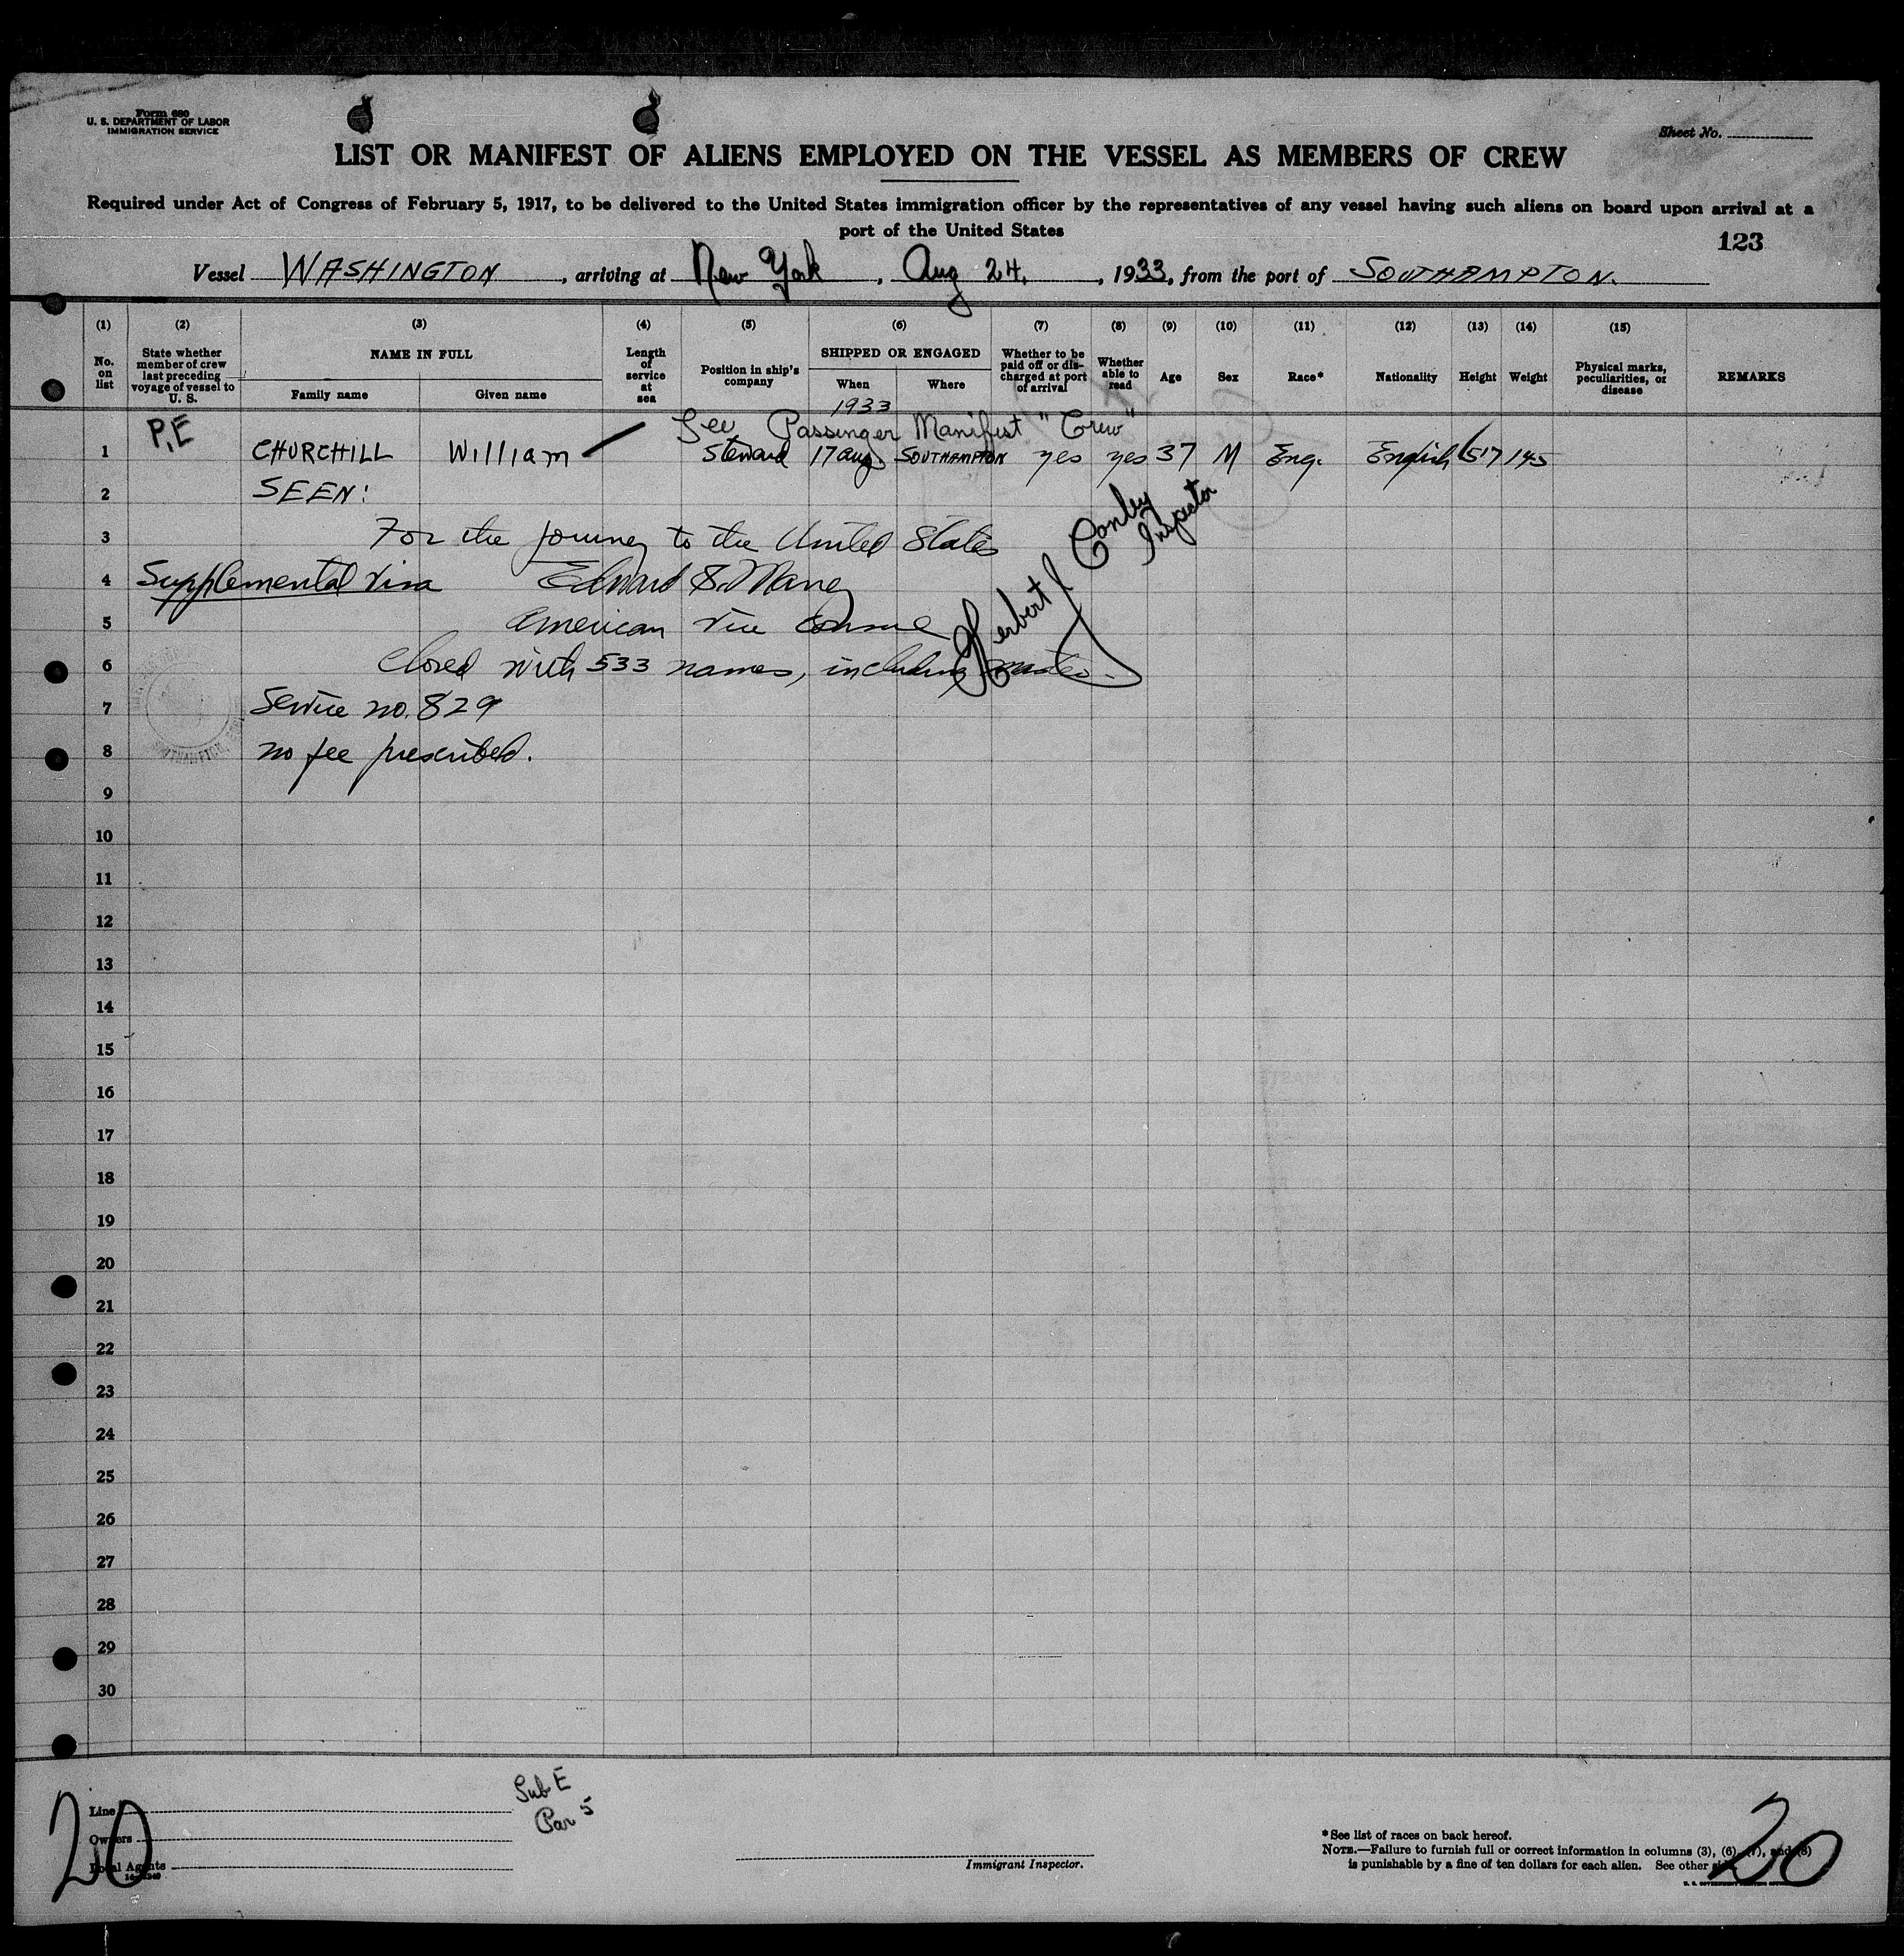 Form 680
U. S. DEPARTMENT OF LABOR
IMMIGRATION SERVICE
Sheet No.
LIST OR MANIFEST OF ALIENS EMPLOYED ON THE VESSEL AS MEMBERS OF CREW
Required under Act of Congress of February 5, 1917, to be delivered to the United States immigration officer by the representatives of any vessel having such aliens on board upon arrival at a
port of the United States
123
Vessel WASHINGTON, arriving at New York, Aug 24, 1933, from the port of SOUTHAMPTON.
(1) (2) (3) (4) (5) (6) (7) (8) (9) (10) (11) (12) (13) (14) (15)
No. on list
State whether member of crew last preceding voyage of vessel to U. S.
NAME IN FULL
Family name Given name
Length of service at sea
Position in ship's company
SHIPPED OR ENGAGED
When Where
1933
Whether to be paid off or discharged at port of arrival
Whether able to read
Age
Sex
Race*
Nationality
Height
Weight
Physical marks, peculiarities, or disease
REMARKS
P.E
See Passinger Manifest "Crew"
1 CHURCHILL William Steward 17 aug SOUTHAMPTON yes yes 37 M Eng. English 5'7 145
2 SEEN:
3 For the journey to the United States
4 Supplemental visa Edward S. Maney
5 American Vice Consul
6 Closed with 533 names, including master.
7 Service no. 829
8 no fee prescribed.
Herbert J Conley
Inspector
9
10
11
12
13
14
15
16
17
18
19
20
21
22
23
24
25
26
27
28
29
30
Sub E
Par 5
Line
Owners
Local Agents
20
Immigrant Inspector.
*See list of races on back hereof.
NOTE.—Failure to furnish full or correct information in columns (3), (6), (7), and (8)
is punishable by a fine of ten dollars for each alien. See other
20